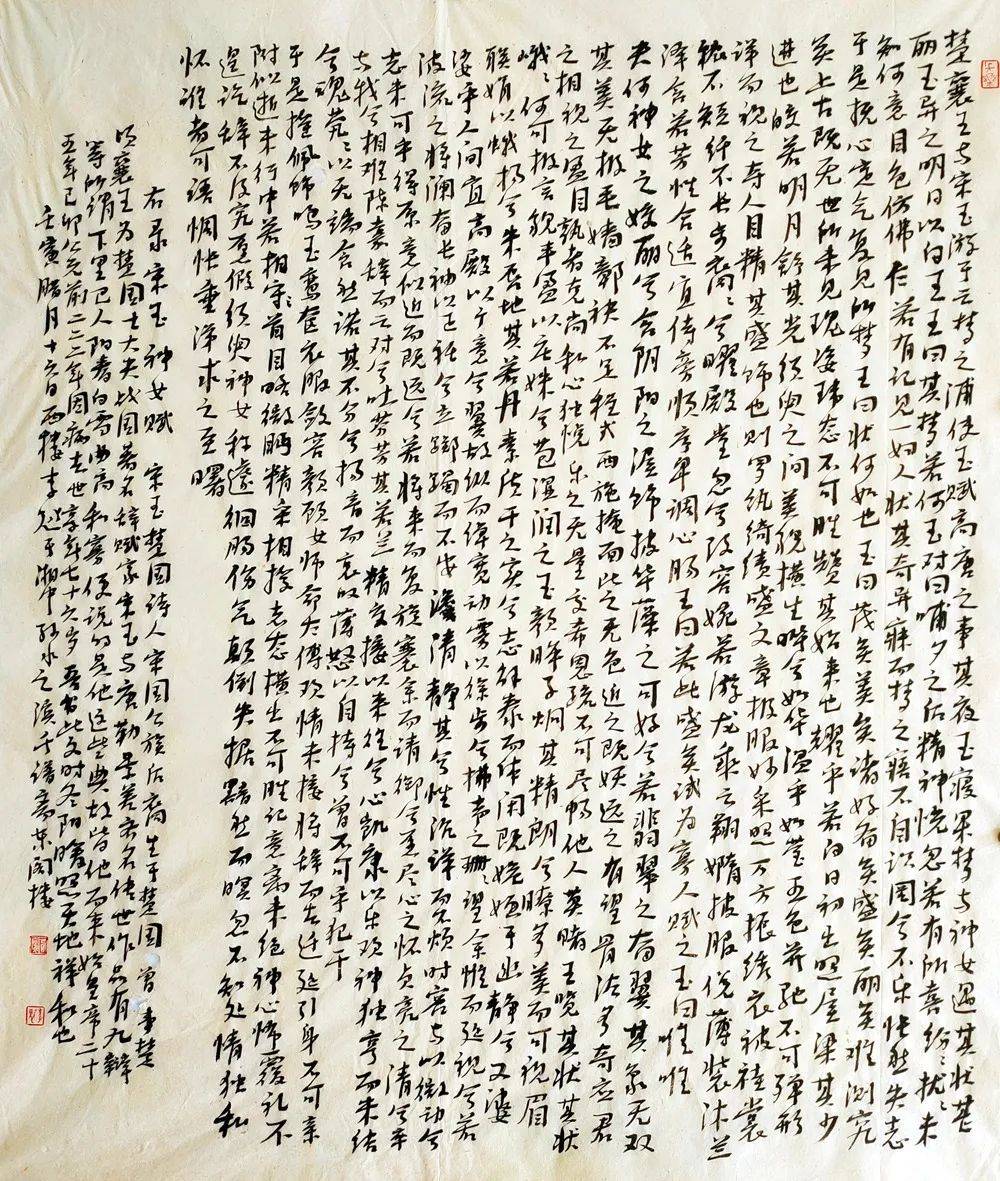 楚襄王与宋玉游于云梦之浦使玉赋高唐之事其夜玉寝果梦与神女遇其状甚
丽玉异之明日以白王王曰其梦若何玉对曰晡夕之后精神恍忽若有所喜纷纷扰扰未
知何意目色仿佛乍若有记见一妇人状甚奇异寐而梦之寤不自识罔兮不乐怅然失志
于是抚心定气复见所梦王曰状何如也玉曰茂矣美矣诸好备矣盛矣丽矣难测究
矣上古既无世所未见瑰姿玮态不可胜赞其始来也耀乎若白日初出照屋梁其少
进也皎若明月舒其光须臾之间美貌横生晔兮如华温乎如莹五色并驰不可殚形
详而视之夺人目精其盛饰也则罗纨绮绩盛文章极服妙采照万方振绣衣被袿裳
秾不短纤不长步裔裔兮曜殿堂忽兮改容婉若游龙乘云翔嫷披服侻薄装沐兰
泽含若芳性合适宜侍旁顺序卑调心肠王曰若此盛矣试为寡人赋之玉曰惟惟
夫何神女之姣丽兮含阴阳之渥饰披华藻之可好兮若翡翠之奋翼其象无双
其美无极毛嫱鄣袂不足程式西施掩面比之无色近之既妖远之有望骨法多奇应君
之相视之盈目孰者克尚私心独悦乐之无量交希恩疏不可尽畅他人莫睹王览其状其状
峨峨何可极言貌丰盈以庄姝兮苞温润之玉颜眸子炯其精朗兮瞭多美而可视眉
联娟以蛾扬兮朱唇地其若丹素质干之实兮志解泰而体闲既姽婳于幽静兮又婆
娑乎人间宜高殿以广意兮翼故纵而绰宽动雾以徐步兮拂声之珊珊望余帷而延视兮若
波流之将澜奋长袖以正衽兮立踯躅而不安澹清静其兮性沉详而不烦时容与以微动兮
志未可乎得原意似近而既远兮若将来而复旋褰余而请御兮愿尽心之怀贞亮之清兮卒
与我兮相难陈嘉辞而云对兮吐芬芳其若兰精交接以来往兮心凯康以乐欢神独亨而未结
兮魂茕茕以无端含然诺其不分兮扬音而哀叹薄怒以自持兮曾不可乎犯干
于是摇佩饰鸣玉鸾奁衣服敛容颜顾女师命太傅欢情未接将辞而去迁延引身不可亲
附似逝未行中若相守首目略微眄精采相授志态横出不可胜记意离未绝神心怖覆礼不
遑讫辞不及究愿假须臾神女称遽徊肠伤气颠倒失据黯然而暝忽不知处情独私
怀谁者可语惆怅垂涕求之至曙
右录宋玉神女赋 宋玉楚国诗人宋国公族后裔生于楚国曾事楚
顷襄王为楚国士大夫战国著名辞赋家宋玉与唐勒景差齐名传世作品有九辩
等所谓下里巴人阳春白雪曲高和寡便说的是他这些典故皆他而来始皇帝二十
五年己卯公元前二二二年因病去世享年七十六岁吾书此文时冬阳曛照天地祥和也
壬寅腊月十六日西楼李